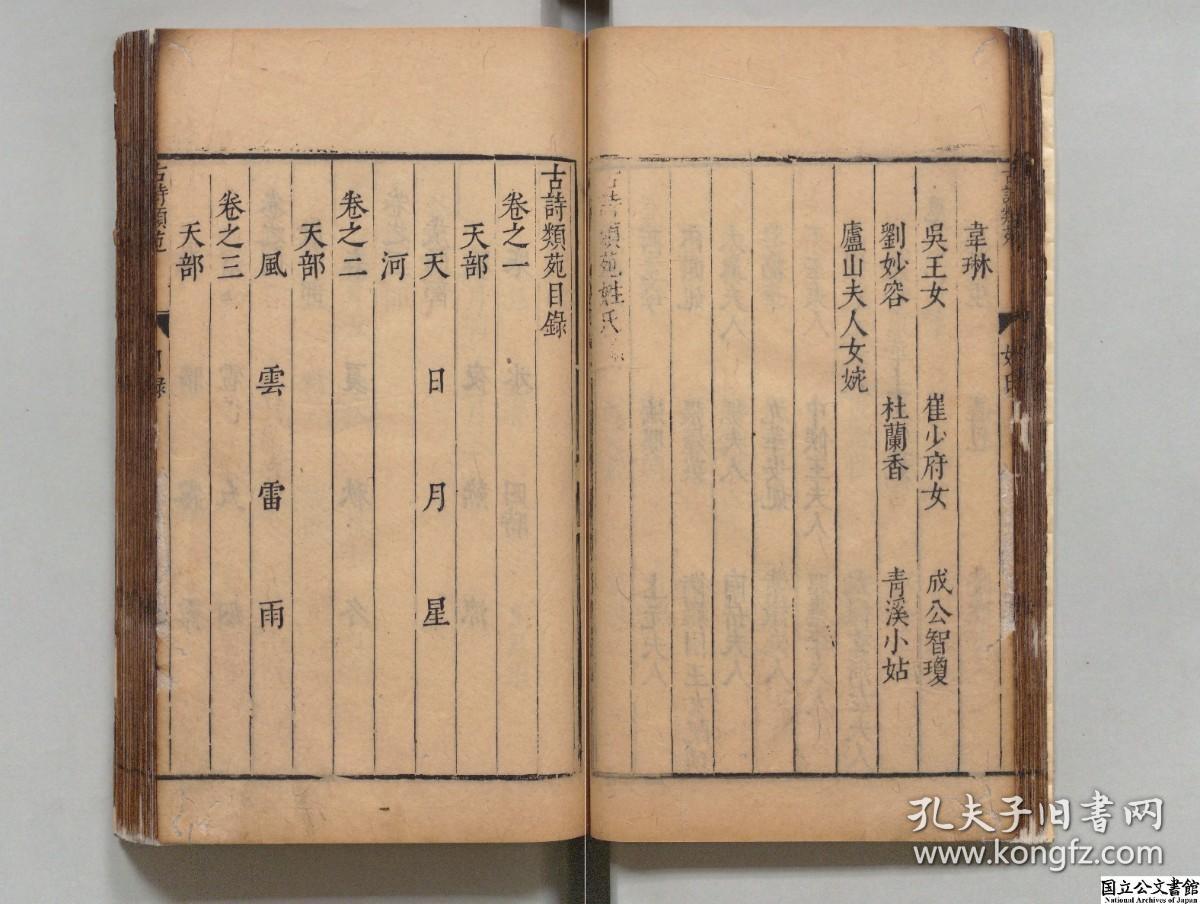 韋琳
吳王女　崔少府女　成公智瓊
劉妙容　杜蘭香　青溪小姑
廬山夫人女婉
古詩類苑姓氏
古詩類苑目錄
卷之一
天部
天　日　月　星
河
卷之二
天部
風　雲　雷　雨
卷之三
天部
古詩類苑
目錄
孔夫子旧书网
www.kongfz.com
国立公文書館
National Archives of Japan